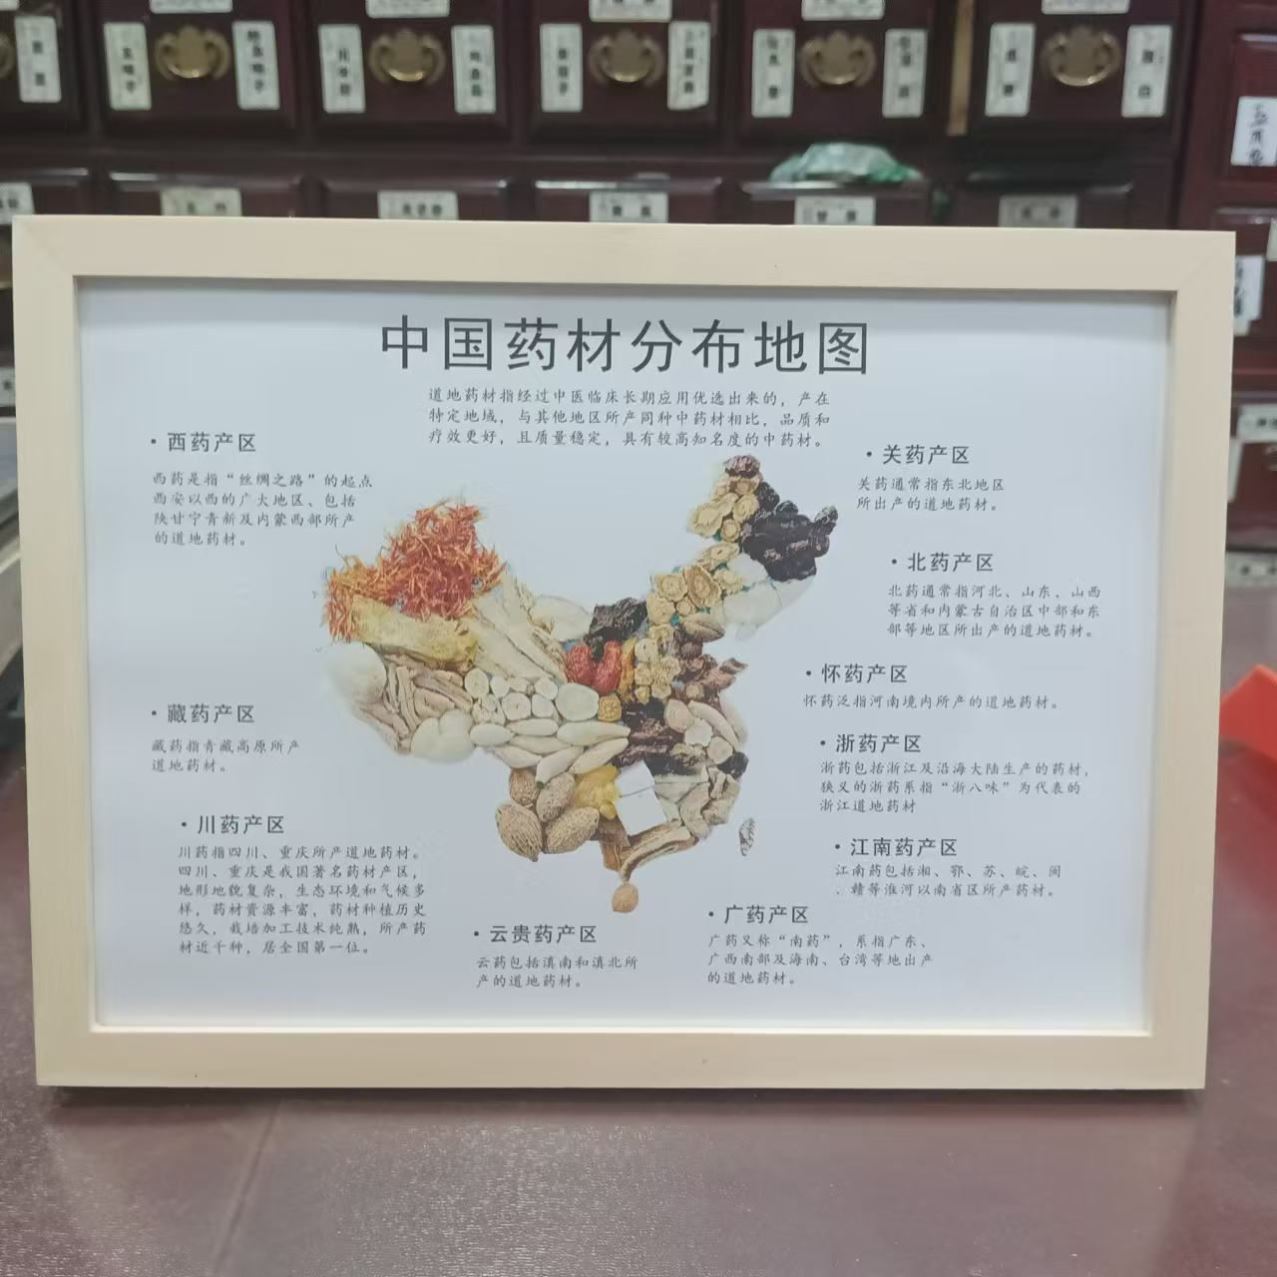 中国药材分布地图
道地药材指经过中医临床长期应用优选出来的，产在
特定地域，与其他地区所产同种中药材相比，品质和
疗效更好，且质量稳定，具有较高知名度的中药材。
·西药产区
西药是指“丝绸之路”的起点
西安以西的广大地区、包括
陕甘宁青新及内蒙西部所产
的道地药材。
·关药产区
关药通常指东北地区
所出产的道地药材。
·北药产区
北药通常指河北、山东、山西
等省和内蒙古自治区中部和东
部等地区所出产的道地药材。
·怀药产区
怀药泛指河南境内所产的道地药材。
·藏药产区
藏药指青藏高原所产
道地药材。
·浙药产区
浙药包括浙江及沿海大陆生产的药材，
狭义的浙药系指“浙八味”为代表的
浙江道地药材
·川药产区
川药指四川、重庆所产道地药材。
四川、重庆是我国著名药材产区，
地形地貌复杂，生态环境和气候多
样，药材资源丰富，药材种植历史
悠久，栽培加工技术纯熟，所产药
材近千种，居全国第一位。
·江南药产区
江南药包括湘、鄂、苏、皖、闽
、赣等淮河以南省区所产药材。
·云贵药产区
云药包括滇南和滇北所
产的道地药材。
·广药产区
广药又称“南药”，系指广东、
广西南部及海南、台湾等地出产
的道地药材。